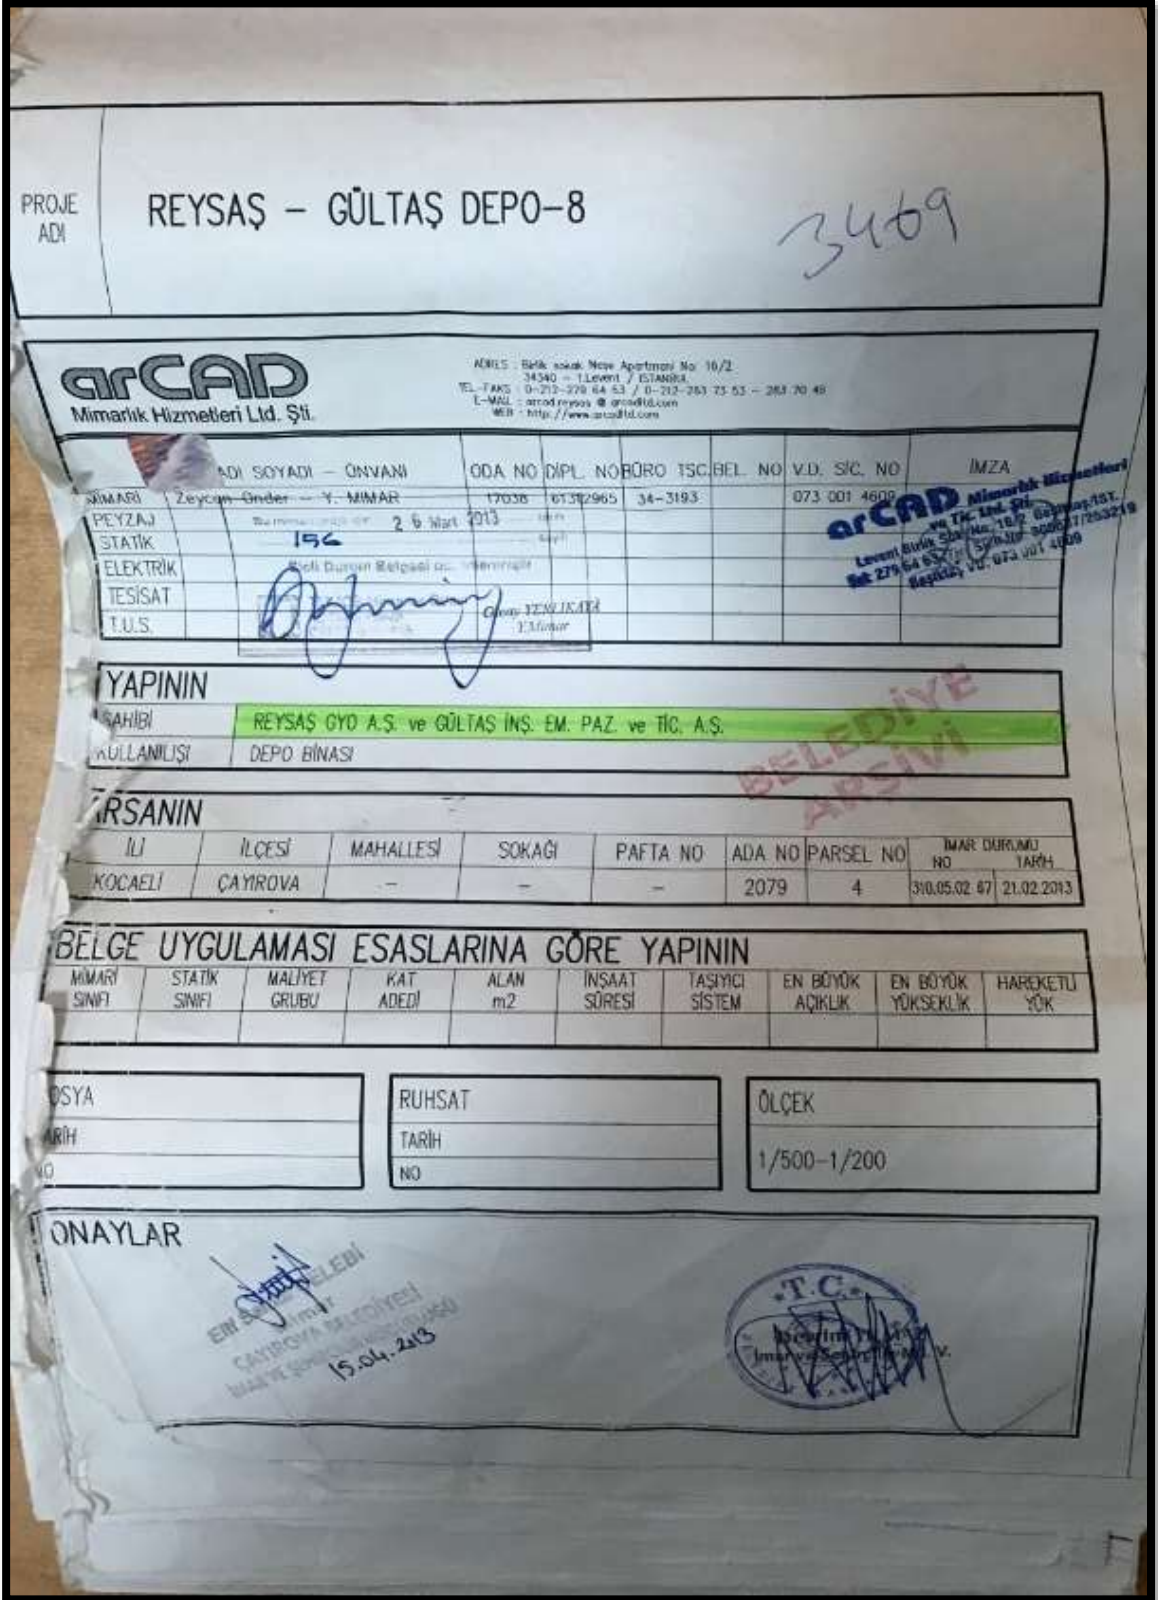 PROJE ADI
REYSAŞ – GÜLTAŞ DEPO-8
3469
arCAD
Mimarlık Hizmetleri Ltd. Şti.
ADRES : Birlik sokak Neşe Apartmanı No: 16/2
34340 – 1.Levent / İSTANBUL
TEL-FAKS : 0-212-279 64 53 / 0-212-283 73 53 – 283 70 48
E-MAIL : arcad.reysas @ arcadltd.com
WEB : http://www.arcadltd.com
ADI SOYADI – ÜNVANI ODA NO DİPL. NO BÜRO TSC. BEL. NO V.D. SİC. NO İMZA
MİMARİ Zeycan Önder – Y. MİMAR 17038 34-3193 073 001 4609
PEYZAJ 26 Mart 2013
STATİK 156
ELEKTRİK Sicil Durum Belgesi
TESİSAT
T.U.S.
YENİ KAYA
Y.Mimar
arCAD Mimarlık Hizmetleri
ve Tic. Ltd. Şti.
Levent Birlik Sok. No: 16/2 Beşiktaş/İST.
Beşiktaş V.D. 073 001 4609
YAPININ
SAHİBİ REYSAŞ GYO A.Ş. ve GÜLTAŞ İNŞ. EM. PAZ. ve TİC. A.Ş.
KULLANILIŞI DEPO BİNASI
BELEDİYE
ARŞİVİ
ARSANIN
İLİ İLÇESİ MAHALLESİ SOKAĞI PAFTA NO ADA NO PARSEL NO İMAR DURUMU
NO TARİH
KOCAELİ ÇAYIROVA – – – 2079 4 310.05.02 67 21.02.2013
BELGE UYGULAMASI ESASLARINA GÖRE YAPININ
MİMARİ SINIFI STATİK SINIFI MALİYET GRUBU KAT ADEDİ ALAN m2 İNŞAAT SÜRESİ TAŞIYICI SİSTEM EN BÜYÜK AÇIKLIK EN BÜYÜK YÜKSEKLİK HAREKETLİ YÜK
OSYA RUHSAT ÖLÇEK
ARİH TARİH 1/500-1/200
NO NO
ONAYLAR
ÇELEBİ
Mimar
ÇAYIROVA BELEDİYESİ
15.04.2013
T.C.